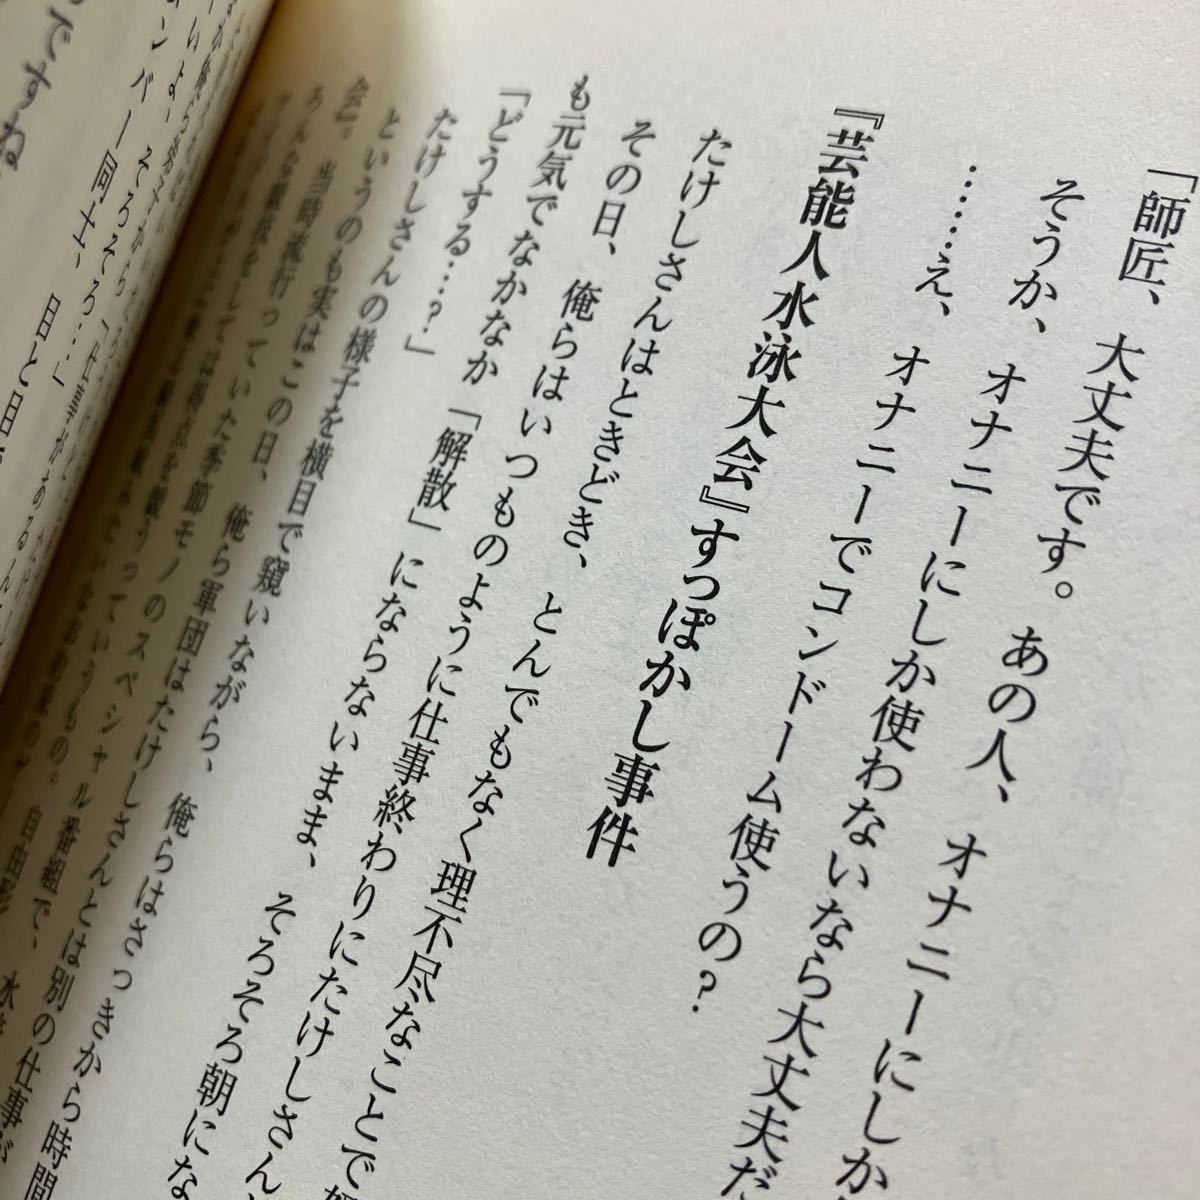 「師匠、大丈夫です。あの人、オナニーにしか
そうか、オナニーにしか使わないなら大丈夫だ
………え、オナニーでコンドーム使うの？
『芸能人水泳大会』すっぽかし事件
たけしさんはときどき、とんでもなく理不尽なことで
その日、俺らはいつものように仕事終わりにたけしさん
も元気でなかなか「解散」にならないまま、そろそろ朝にな
「どうする…？」
たけしさんの様子を横目で窺いながら、俺らはさっきから時間
というのも実はこの日、俺ら軍団はたけしさんとは別の仕事が
会』。当時流行っていた季節モノのスペシャル番組で、水
ろんな競技をしては得点を競うっていうもの。自由形
ですね
ンバー同士、目と目
そろそろ…」「仕事があるん